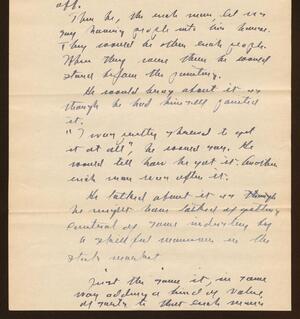 off.
Then he, the rich man, let us
say having people into his house.
They would be other rich people.
When they came there he would
stand before the painting.
He would brag about it as
though he had himself painted
it.
"I was pretty shrewd to get
it at all", he would say. He
would tell how he got it. Another
rich man was after it.
He talked about it as though
he might have talked of getting
control of some industry by
a skillful maneuver in the
stock market
Just the same it, in some
way adding a kind of value,
of to that rich man's